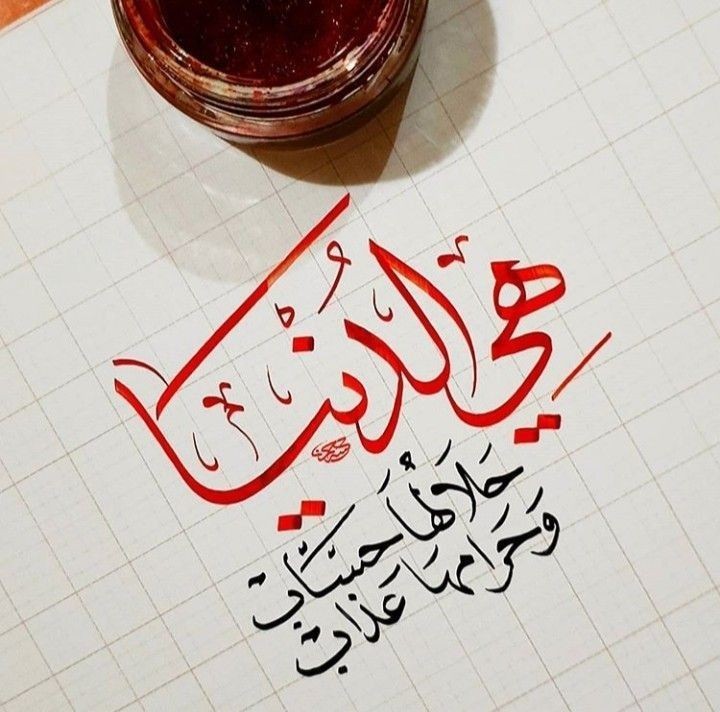 هِيَ الدُنْيَا
حَلَالُهَا حِسَابٌ
وَحَرَامُهَا عَذَابٌ